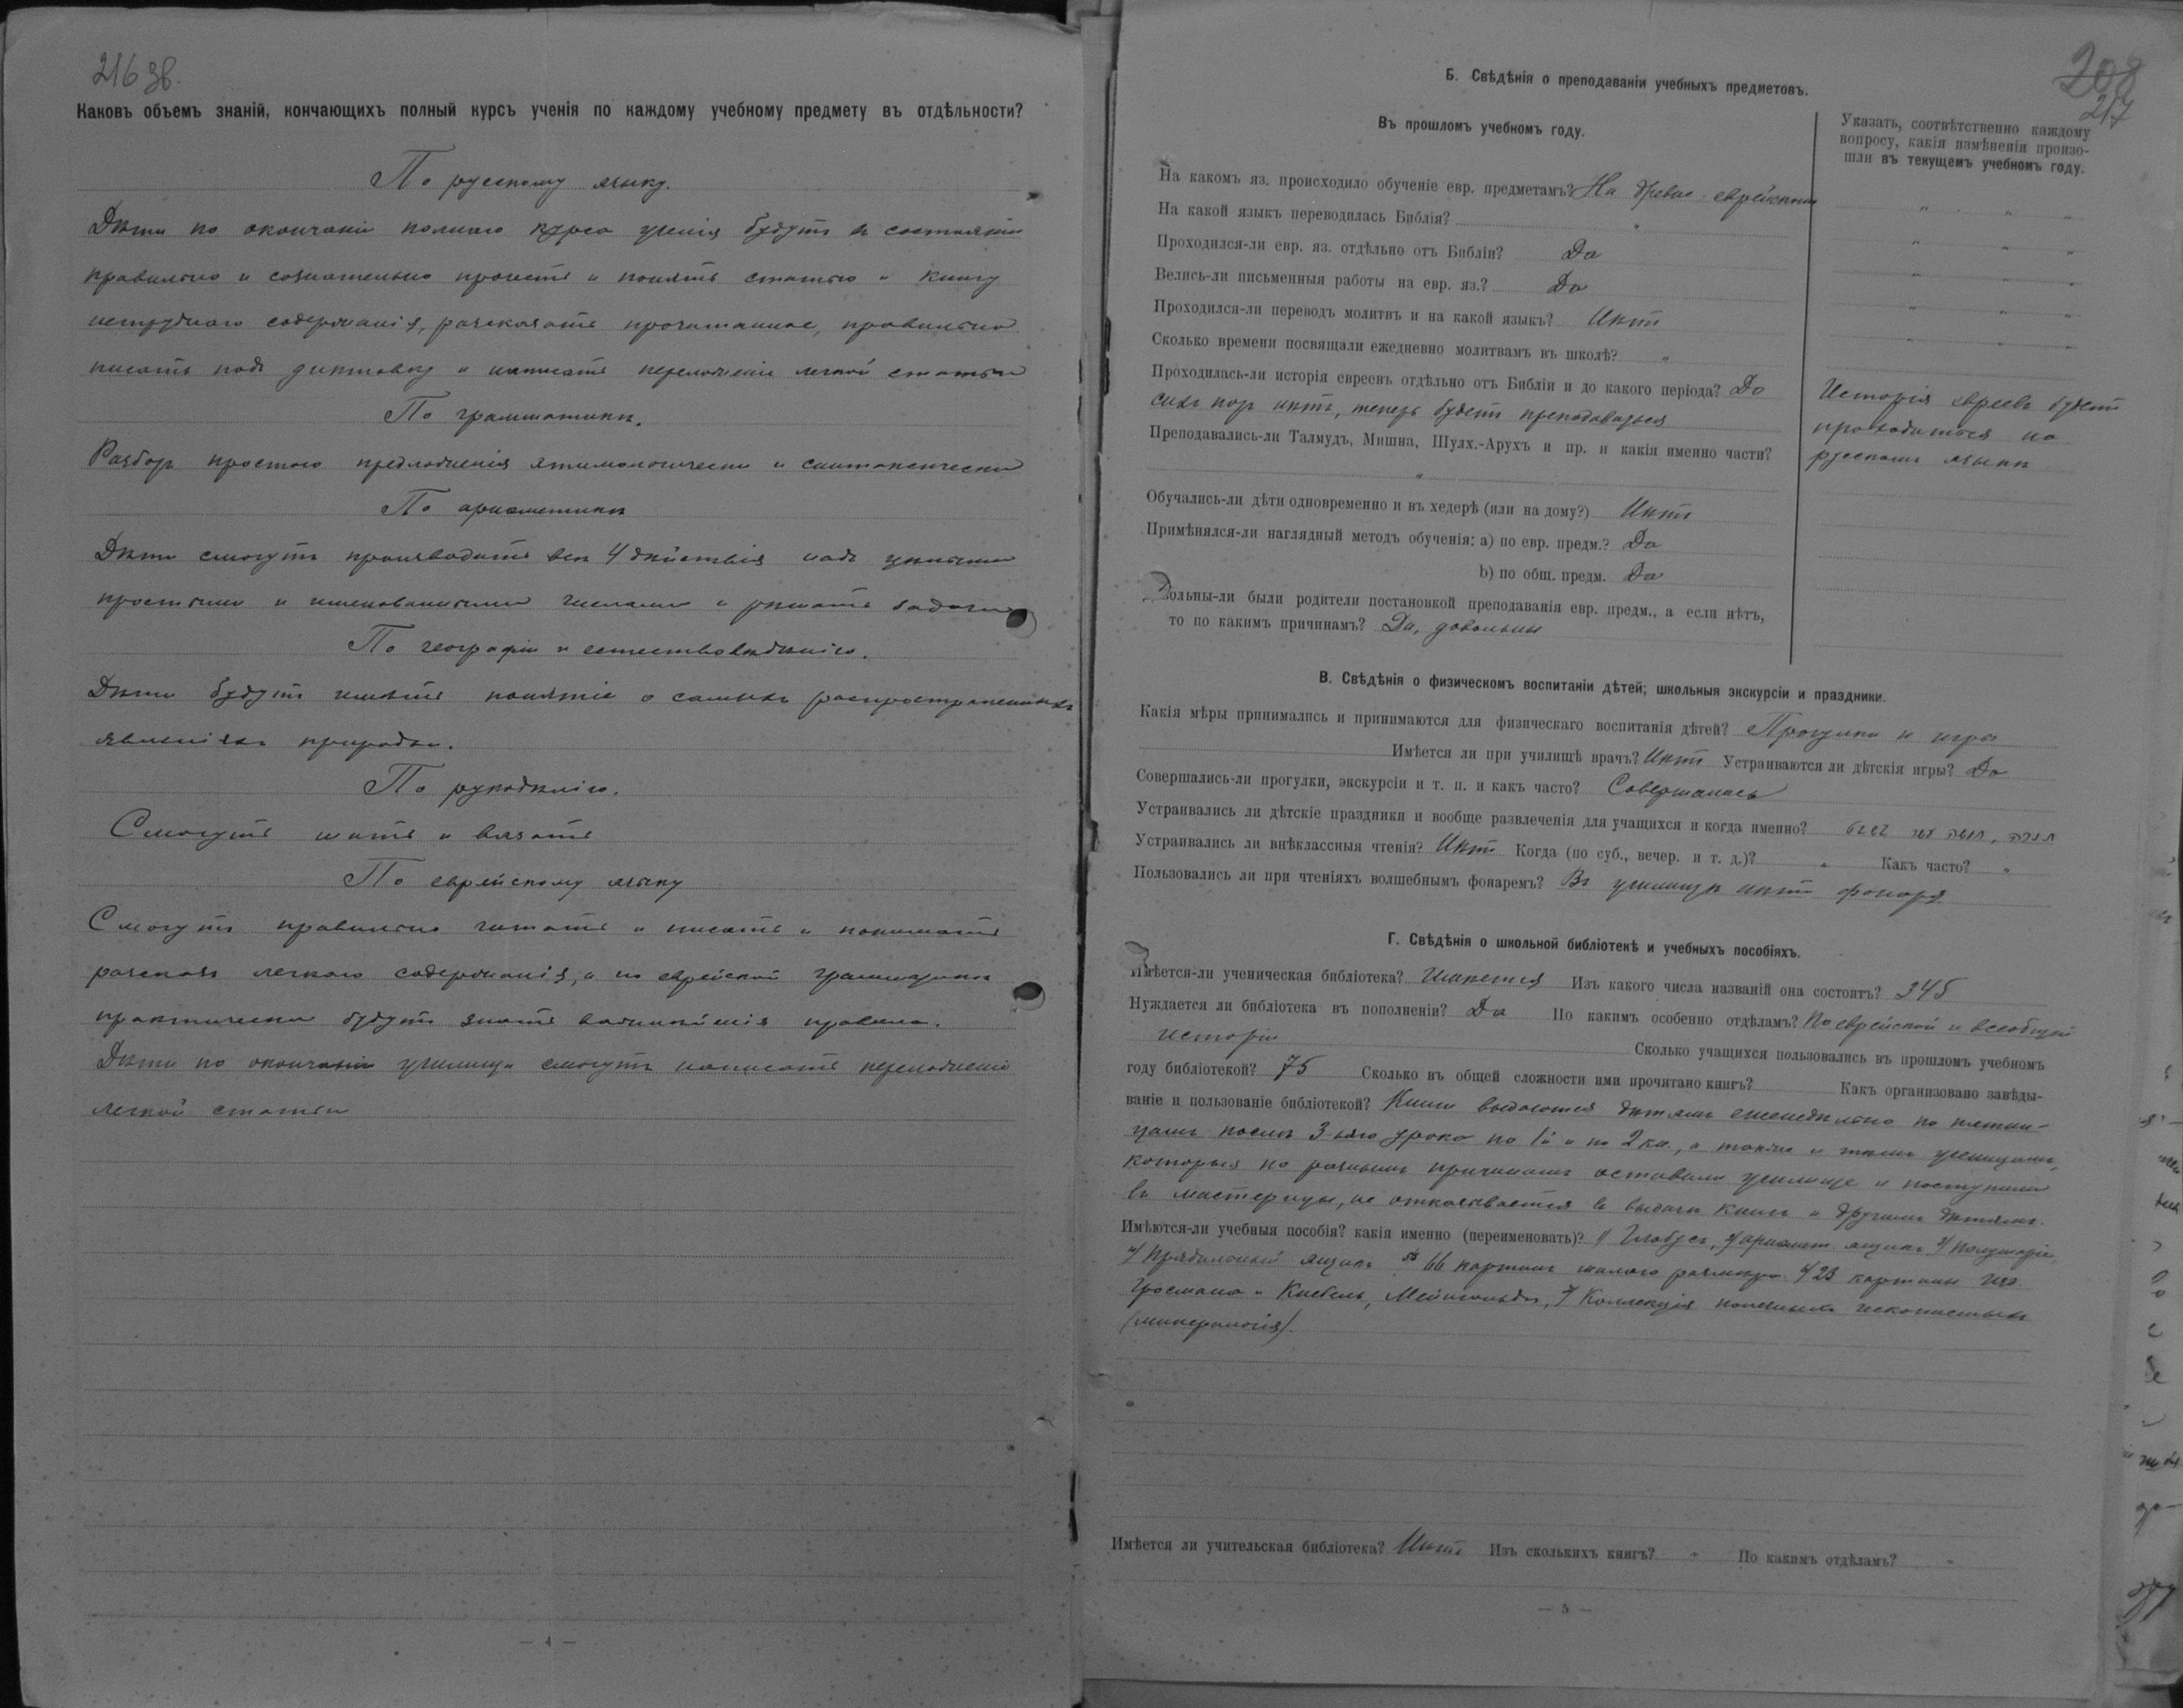 216 зв.
Каковъ объемъ знаній, кончающихъ полный курсъ ученія по каждому учебному предмету въ отдѣльности?
По русскому языку.
Дѣти по окончаніи полнаго курса ученія будутъ въ состояніи
правильно и сознательно прочесть и понять статью и книгу
нетруднаго содержанія, разсказать прочитанное, правильно
писать подъ диктовку и написать переложеніе легкой статьи
По грамматикѣ.
Разборъ простого предложенія этимологически и синтаксически
По ариѳметикѣ
Дѣти смогутъ производить всѣ 4 дѣйствія надъ цѣлыми
простыми и именованными числами и рѣшать задачи
По географіи и естествовѣдѣнію.
Дѣти будутъ имѣть понятіе о самыхъ распространенныхъ
явленіяхъ природы.
По рукодѣлію.
Смогутъ шить и вязать
По еврейскому языку
Смогутъ правильно читать и писать и понимать
разсказъ легкаго содержанія, а по еврейской грамматикѣ
практически будутъ знать важнѣйшія правила.
Дѣти по окончаніи училища смогутъ написать переложеніе
легкой статьи
— 4 —
208
217
Б. Свѣдѣнія о преподаваніи учебныхъ предметовъ.
Въ прошломъ учебномъ году.
Указать, соотвѣтственно каждому
вопросу, какія измѣненія произо-
шли въ текущемъ учебномъ году.
На какомъ яз. происходило обученіе евр. предметамъ? На древне-еврейскомъ
На какой языкъ переводилась Библія? "
Проходился-ли евр. яз. отдѣльно отъ Библіи? Да
Велись-ли письменныя работы на евр. яз.? Да
Проходился-ли переводъ молитвъ и на какой языкъ? Нѣтъ
Сколько времени посвящали ежедневно молитвамъ въ школѣ? "
Проходилась-ли исторія евреевъ отдѣльно отъ Библіи и до какого періода? До
сихъ поръ нѣтъ, теперь будетъ преподаваться
Исторія евреевъ будетъ
проходиться на
русскомъ языкѣ
Преподавались-ли Талмудъ, Мишна, Шулх.-Арухъ и пр. и какія именно части?
"
Обучались-ли дѣти одновременно и въ хедерѣ (или на дому?) Нѣтъ
Примѣнялся-ли наглядный методъ обученія: а) по евр. предм.? Да
b) по общ. предм. Да
Довольны-ли были родители постановкой преподаванія евр. предм., а если нѣтъ,
то по какимъ причинамъ? Да, довольны
В. Свѣдѣнія о физическомъ воспитаніи дѣтей; школьныя экскурсіи и праздники.
Какія мѣры принимались и принимаются для физическаго воспитанія дѣтей? Прогулки и игры
Имѣется ли при училищѣ врачъ? Нѣтъ Устраиваются ли дѣтскія игры? Да
Совершались-ли прогулки, экскурсіи и т. п. и какъ часто? Совершались
Устраивались ли дѣтскіе праздники и вообще развлеченія для учащихся и когда именно?
Устраивались ли внѣклассныя чтенія? Нѣтъ Когда (по суб., вечер. и т. д.)? " Какъ часто? "
Пользовались ли при чтеніяхъ волшебнымъ фонаремъ? Въ училищѣ нѣтъ фонаря
Г. Свѣдѣнія о школьной библіотекѣ и учебныхъ пособіяхъ.
Имѣется-ли ученическая библіотека? Имѣется Изъ какого числа названій она состоитъ? 345
Нуждается ли библіотека въ пополненіи? Да По какимъ особенно отдѣламъ? По еврейской и всеобщей
исторіи Сколько учащихся пользовались въ прошломъ учебномъ
году библіотекой? 75 Сколько въ общей сложности ими прочитано книгъ? Какъ организовано завѣды-
ваніе и пользованіе библіотекой? Книги выдаются дѣтямъ еженедѣльно по пятни-
цамъ послѣ 3-яго урока по 1й и по 2 кн., а также и тѣмъ ученицамъ,
которыя по разнымъ причинамъ оставили училище и поступили
въ мастерицы, не отказывается въ выдачѣ книгъ и другимъ дѣтямъ.
Имѣются-ли учебныя пособія? какія именно (переименовать)? 1) Глобусъ, 2) ариѳмет. ящикъ 3) Полушарія,
4) Фребелевскій ящикъ 5) 66 картинъ малаго размѣра 6) 23 картины изд.
Гросмана и Кнебель, Мейнгольда, 7) Коллекція полезныхъ ископаемыхъ
(минералогія).
Имѣется ли учительская библіотека? Нѣтъ Изъ сколькихъ книгъ? " По какимъ отдѣламъ? "
— 5 —